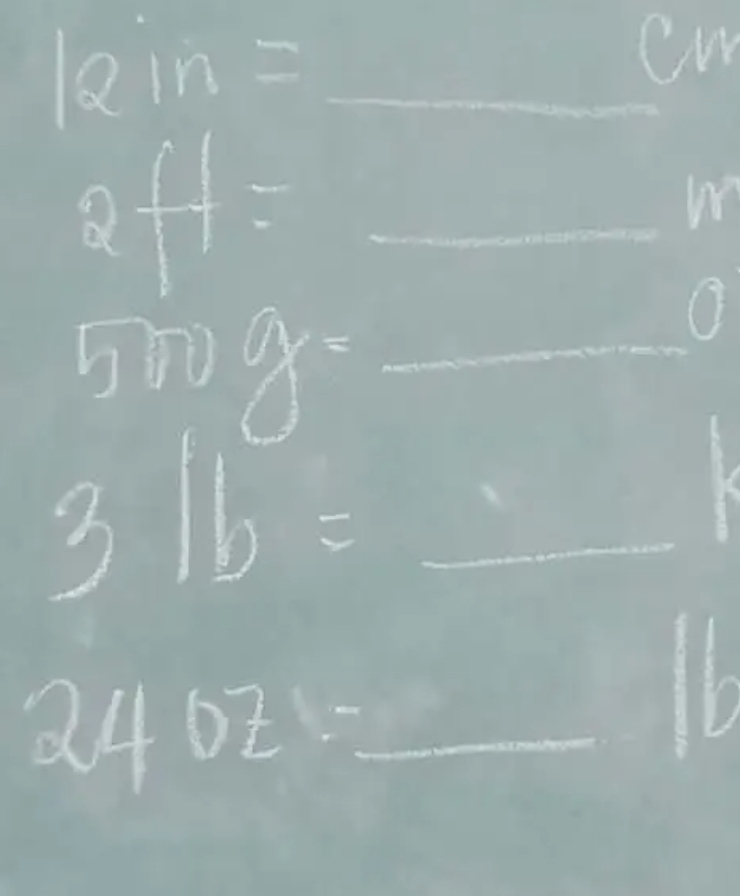 12 in = ______ cm
2 ft = ______ m
500 g = ______ o
3 lb = ______ k
24 oz = ______ lb